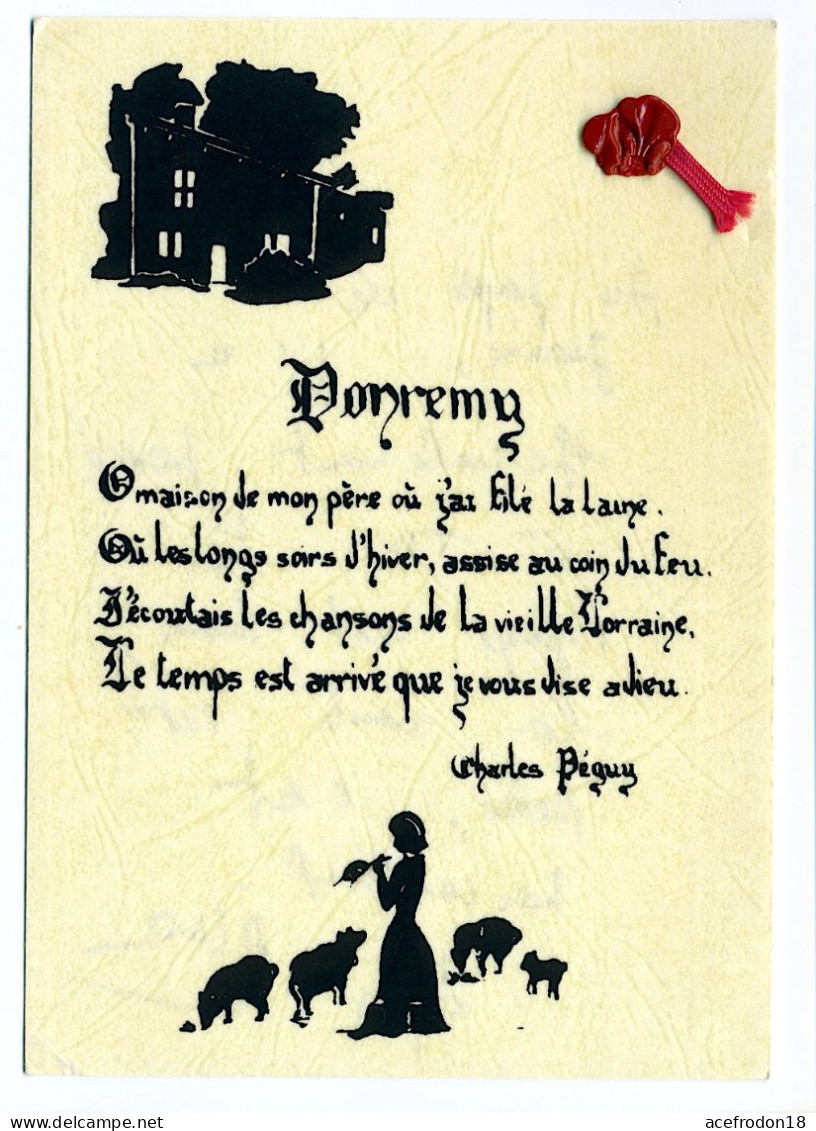 Donremy
O maison de mon père où j'ai filé la laine.
Où les longs soirs d'hiver, assise au coin du feu.
J'écoutais les chansons de la vieille Lorraine,
Le temps est arrivé que je vous dise adieu.
Charles Péguy
acefrodon18